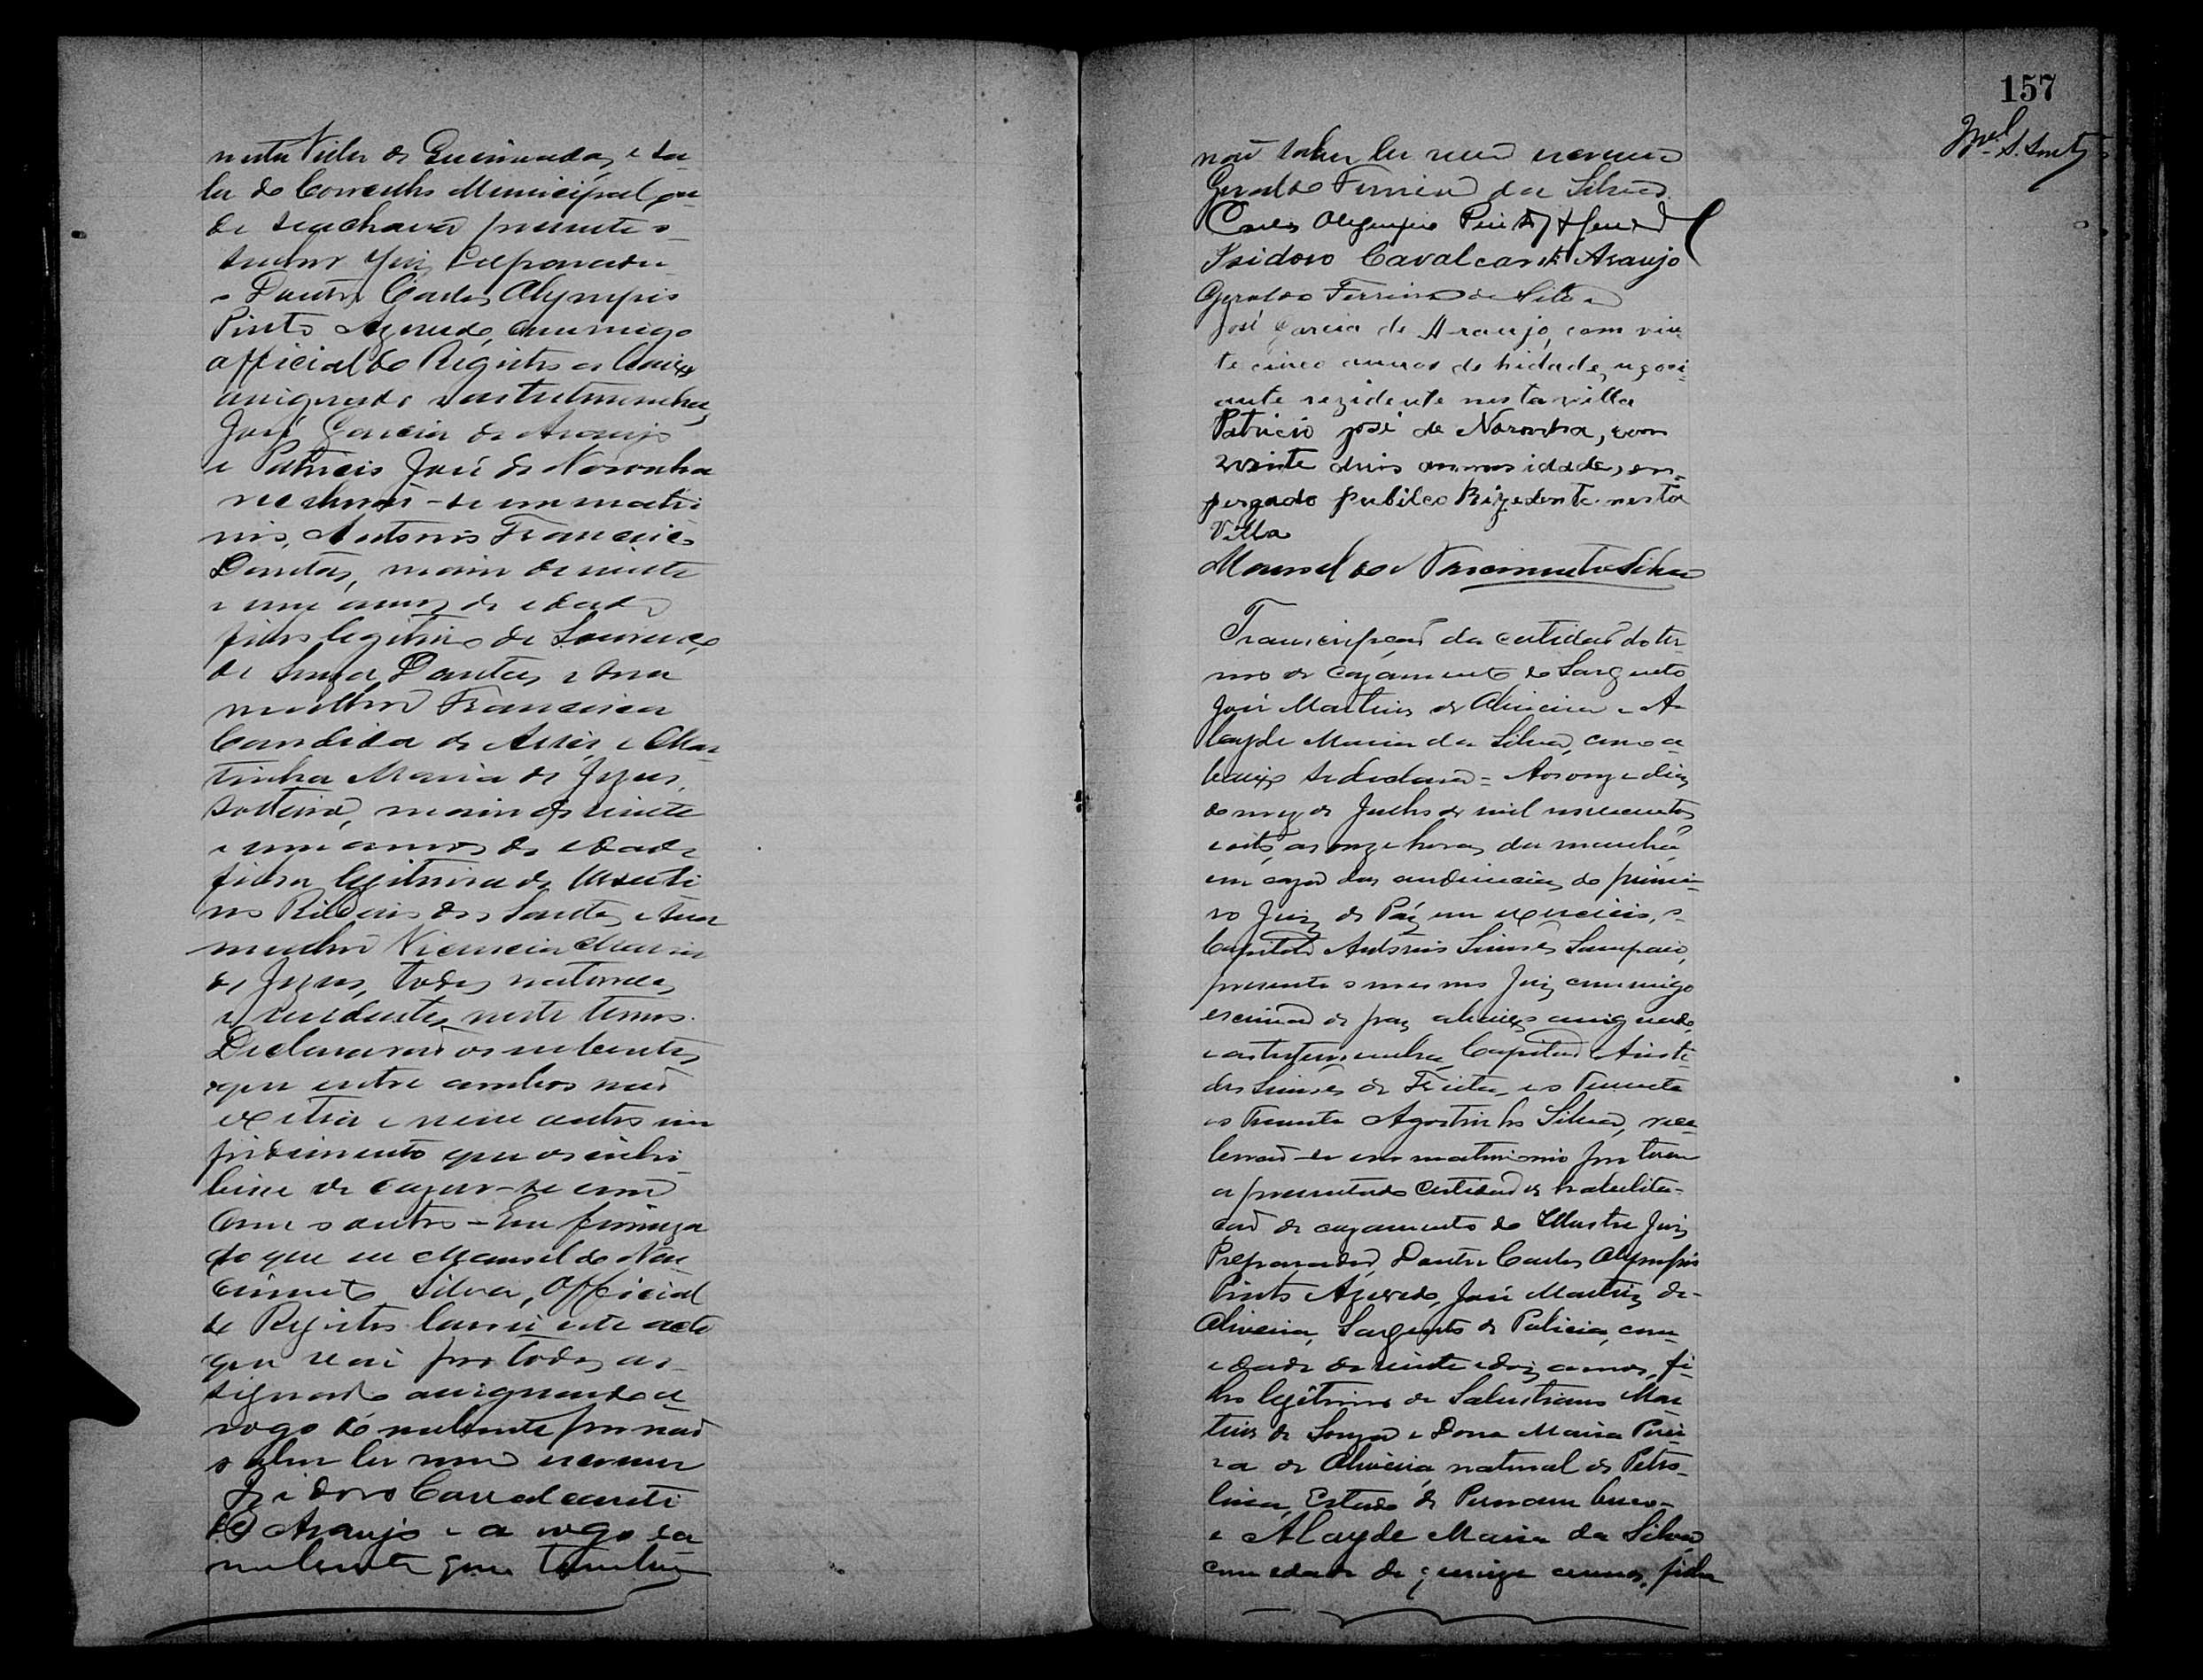 nesta Villa de Queimadas, e sa-
la do Concelho Municipal on-
de se achava presente o
senhor Juiz Preparador
o Doutor Carlos Olympio
Pinto Azevedo, commigo
official do Registro abaixo
assignado e as testemunhas,
José Garcia de Araujo
e Patricio José de Noronha
receberão-se em matri
nio, Antonio Francisco
Dantas, maior de vinte
e um annos de edade
filho legitimo de Lourenço
de Souza Dantas, e sua
mulher Francisca
Candida de Assis, e Mar
tinha Maria de Jezus,
solteira, maior de vinte
e um annos de edade
filha legitima de
no Ribeiro dos Santos, e sua
mulher Vicencia Maria
de Jezus, todos naturaes
e rezidentes neste termo.
Declararaõ os nubentes,
que entre ambos naõ
existia e nem outro im
pidimento que os inhi-
bisse de cazar-se um
com o outro - Em firmeza
do que eu Manoel do Nas
cimento Silva, Official
do Registro lavrei este acto
que vai por todos as-
signado assignando a
rogo do nubente por naõ
saber ler nem escrever
Izidoro Cavalcanti
de Araujo e a rogo da
nubente que tambem
157
naõ saber ler nem escrever
Geraldo Ferreira da Silva.
Carlos Olympio Pinto Azevedo
Isidoro Cavalcanti Araujo
Geraldo Ferreira da Silva
José Garcia de Araujo, com vin
te cinco annos de hidade, negoci-
ante rezidente nesta villa
Patricio josé de Noronha, com
vinte dois annos idade, em-
pergado publico Rizedente nesta
Villa
Manoel do Nascimento Silva
Transcripçaõ da certidaõ do ter-
mo de cazamento do Sargento
José Martins de Oliveira e A-
layde Maria da Silva, como a-
baixo se declara = Aos onze dias
do mez de Julho de mil novecentos
e oito, as onze horas da manhã,
em caza das audiencias do primei-
ro Juiz de Paz em exercicio, o
Capitaõ Antonio Simões Sampaio,
presente o mesmo Juiz commigo
escrivaõ de paz abaixo assignado,
e as testemunhas Capitaõ Aristi
des Simões de Freitas, e o Tenente
e o Tenente Agostinho Silva, rece
beraõ-se em matrimonio por terem
apresentado Certidaõ de habilita-
çaõ de cazamento do Illustre Juiz
Preparador, Doutor Carlos Olympio
Pinto Azevedo, José Martins de
Oliveira, Sargento de Policia, com
edade de vinte e dois annos, fi-
lho legitimo de Salustiano Mar
tins de Souza e Dona Maria Perei
ra de Oliveira natural de Petro-
lina, Estado de Pernambuco -
e Alayde Maria da Silva
com edade de quinze annos, filha